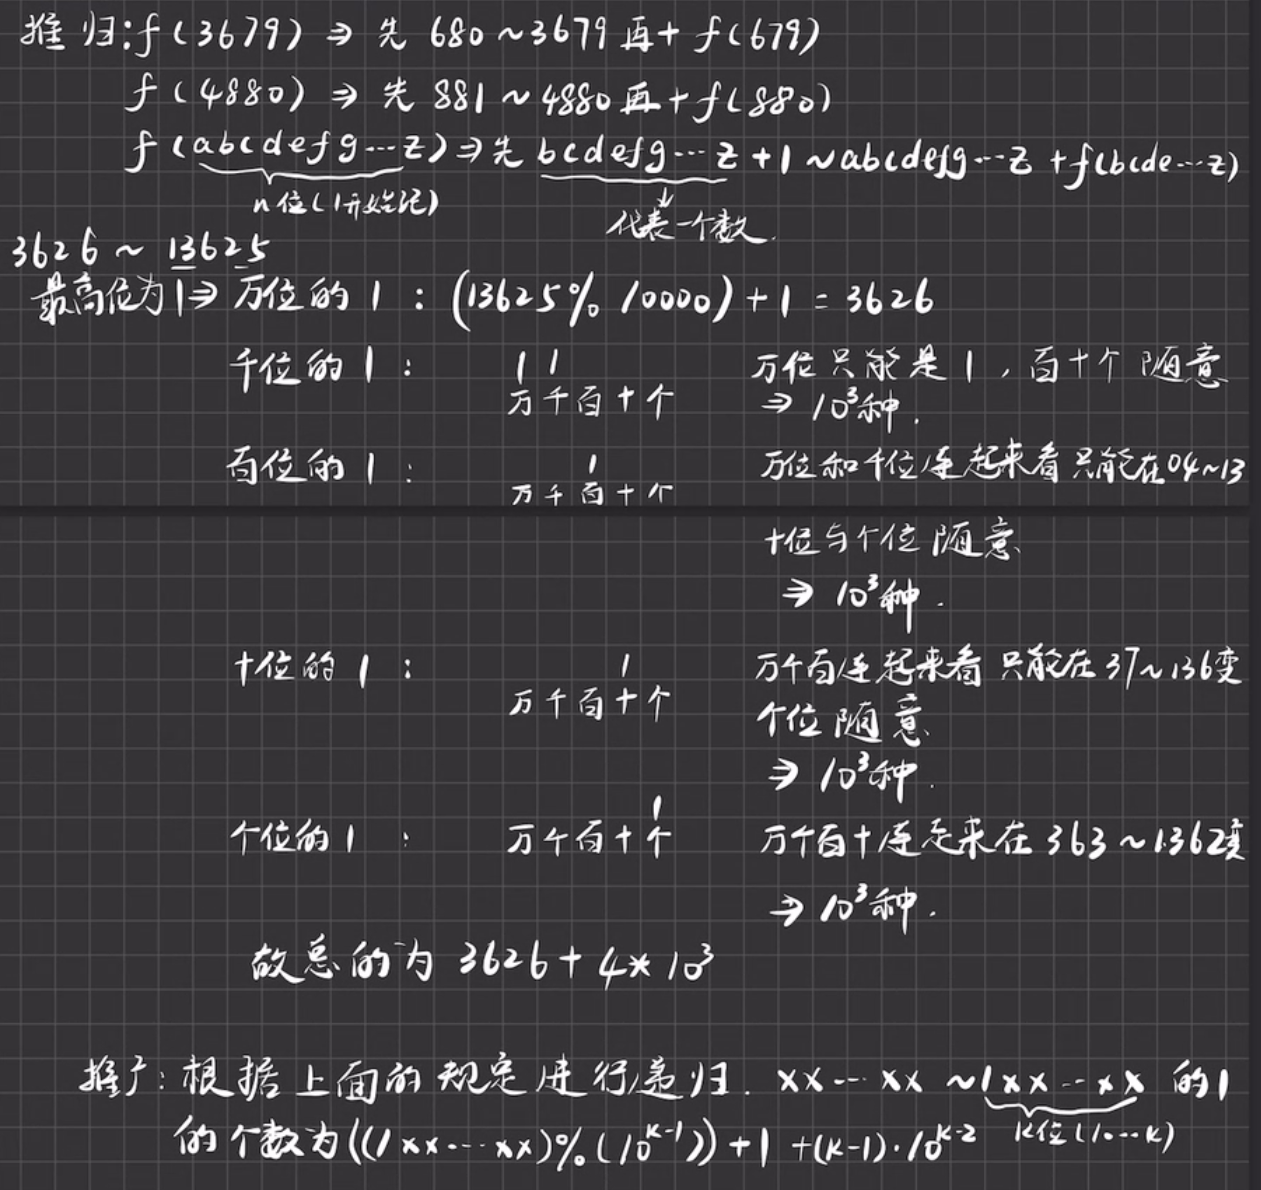 推归:f(3679) ⇒ 先 680~3679 再+ f(679)
f(4880) ⇒ 先 881~4880 再+f(880)
f(abcdefg…z)⇒先 bcdefg…z +1 ~abcdefg…z +f(bcde…z)
n位(1开始记)
代表一个数.
3626 ~ 13625
最高位为1⇒ 万位的1 : (13625% 10000)+1 = 3626
千位的1 : 1 1 万位只能是1,百十个随意
万千百十个 ⇒ 10³种.
百位的1 : 1 万位和千位连起来看只能在04~13
万千百十个
十位与个位随意
⇒ 10³种.
十位的1 : 1 万千百连起来看只能在37~136变
万千百十个 个位随意
⇒ 10³种.
1
个位的1 : 万千百十个 万千百十连起来在363~1362变
⇒ 10³种.
故总的为 3626+4*10³
推广:根据上面的规定进行递归. xx--xx ~1xx--xx 的1
k位(1…k)
的个数为((1xx---xx)%(10^(k-1))+1 +(k-1)·10^(k-2)